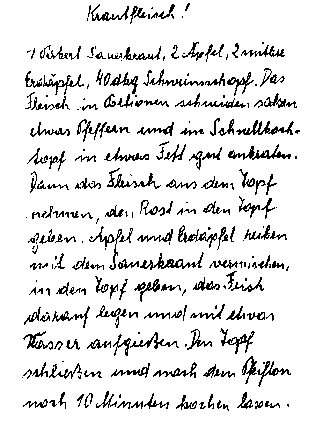 Krautfleisch!
1 Packerl Sauerkraut, 2 Apfel, 2 mittlere
Erdäpfel, 40 dkg Schweinsschopf. Das
Fleisch in Portionen schneiden salzen
etwas Pfeffern und im Schnellkoch-
topf in etwas Fett gut anbraten.
Dann das Fleisch aus dem Topf
nehmen, den Rost in den Topf
geben. Apfel und Erdäpfel reiben
mit dem Sauerkraut vermischen,
in den Topf geben, das Fleisch
darauf legen und mit etwas
Wasser aufgießen. Den Topf
schließen und nach dem Pfeifton
noch 10 Minuten kochen lassen.